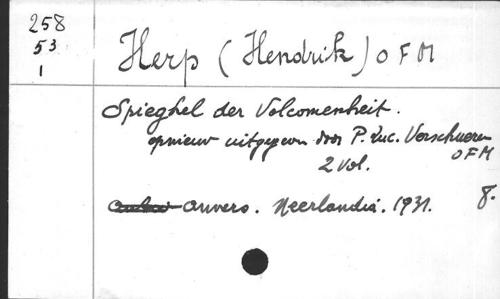 258
53
1
Herp (Hendrik) OFM
Spieghel der Volcomenheit.
opnieuw uitgegeven door P. Luc. Verschueren
OFM
2 Vol.
Anvers. Neerlandia. 1931. 8.